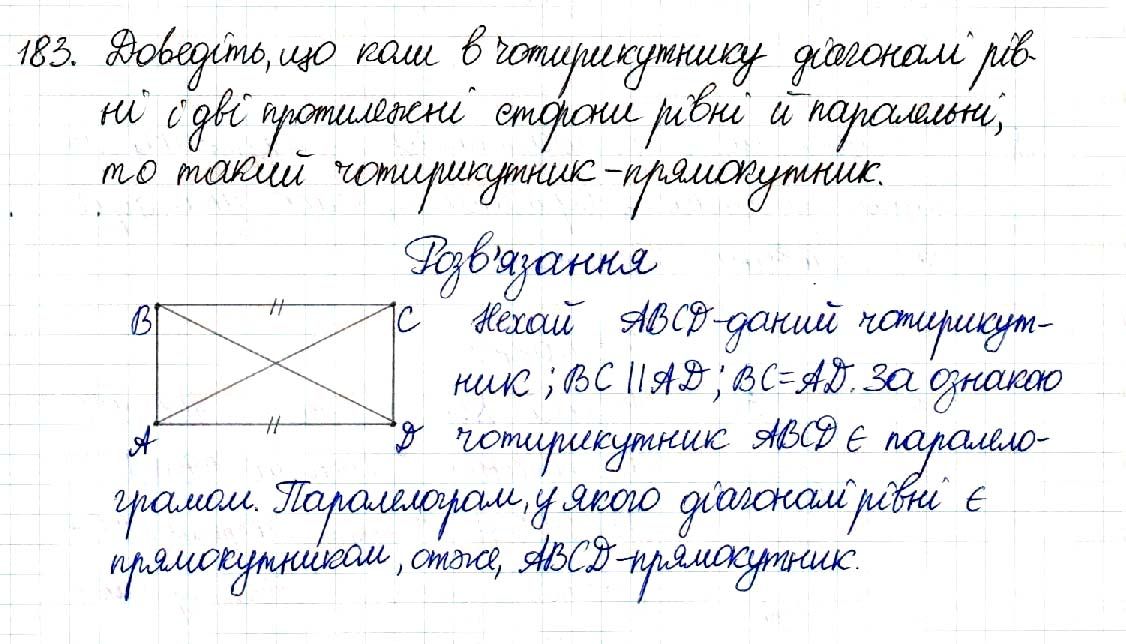 183. Доведіть, що коли в чотирикутнику діагоналі рів-
ні і дві протилежні сторони рівні й паралельні,
то такий чотирикутник – прямокутник.
Розв'язання
B
C
A
D
Нехай ABCD – даний чотирикут-
ник ; BC || AD ; BC = AD. За ознакою
чотирикутник ABCD є паралело-
грамом. Паралелограм, у якого діагоналі рівні є
прямокутником, отже, ABCD – прямокутник.